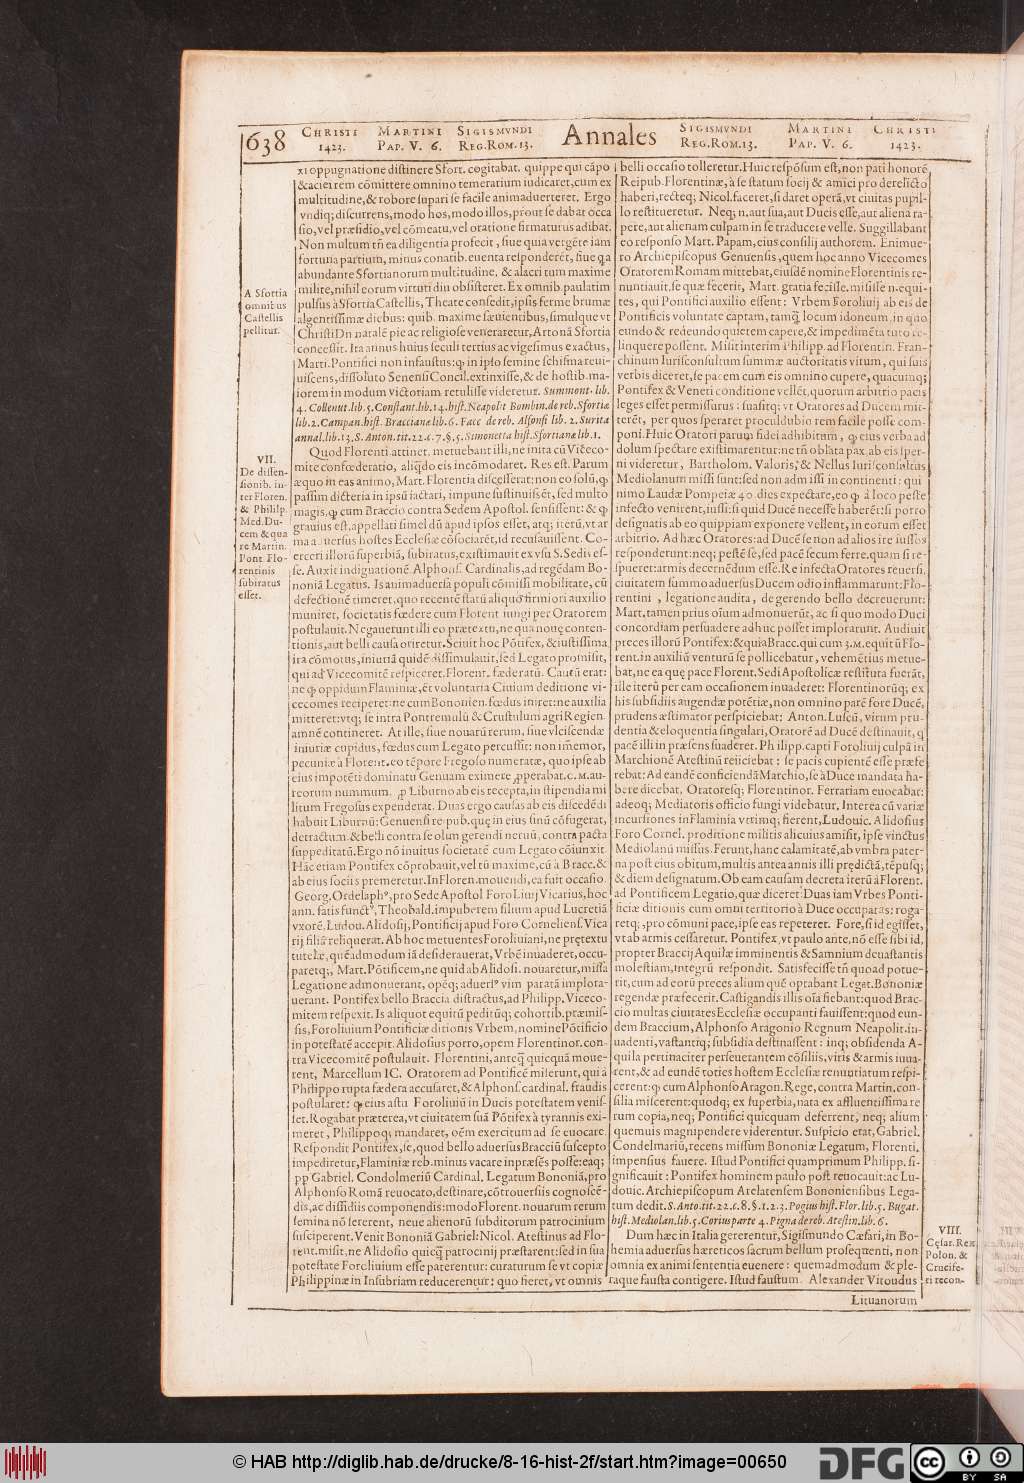 638 CHRISTI MARTINI SIGISMVNDI Annales SIGISMVNDI MARTINI CHRISTI
1423. PAP. V. 6. REG.ROM.13. REG.ROM.13. PAP. V. 6. 1423.
oppugnatione distinere Sfort. cogitabat. quippe qui cãpo
&aciei rem cõmittere omnino temeratium iudicaret,cum ex
multitudine,& robore supari se facile animaduerteret. Ergo
vndiq; discurrens,modo hos,modo illos,prout se dabat occa
sio,vel præsidio,vel cõmeatu,vel oratione firmaturus adibat.
Non multum tñ ea diligentia profecit , siue quia vergẽte iam
fortuna partium, minus conatib. euenta responderẽt, siue qa
abundante Sfortianorum multitudine, & alacri tum maxime
milite,nihil eorum virtuti diu obsisteret. Ex omnib. paulatim
pulsus à Sfortia Castellis, Theate consedit,ipsis ferme brumæ
algentissimæ diebus: quib. maxime sæuientibus,simulque vt
ChristiDñ natalẽ pie ac religiose veneraretur,Artonã Sfortia
concessit. Ita annus huius seculi tertius ac vigesimus exactus,
Marti. Pontifici non infaustus: ꝙ in ipso semine schisma reui-
uiscens,dissoluto SenensiConcil.extinxisse,& de hostib.ma-
iorem in modum victoriam retulisse videretur. Summont. lib.
4. Collenut.lib.5.Constant.lib.14.hist.Neapolit Bombin.de reb.Sfortiæ
lib.2.Campan.hist. Braccianælib.6.Facc de reb. Alfonsi lib. 2. Surita
annal.lib.13.S. Anton.tit.22.c.7.§.5.Simonetta hist.Sfortianælib.1.
A Sfortia
omnibus
Castellis
pellitur.
VII.
De dissen-
sionib. in-
ter Floren.
& Philip.
Med.Du-
cem & qua
re Martin.
Pont. Flo-
rentinis
subiratus
esset.
Quod Florenti attinet, metuebant illi,ne inita cũ Viceco-
mite confœderatio, aliqđo eis incõmodaret. Res est. Parum
æquo in eas animo,Mart.Florentia discesserat: non eo solũ,ꝙ
passim dicteria in ipsũ iactari, impune sustinuissẽt, sed multo
magis,ꝙ cum Braccio contra Sedem Apostol. sensissent: & ꝙ
grauius est,appellati simel dũ apud ipsos esset, atq; iterũ,vt ar
ma aduersus hostes Ecclesiæ cõsociarẽt,id recusauissent. Co-
erceri illorũ superbiã, subiratus,existimauit ex vsu S.Sedis es-
se. Auxit indignationẽ Alphons. Cardinalis,ad regẽdam Bo-
noniã Legatus. Is animaduersa populi cõmissi mobilitate, cũ
defectionẽ timeret,quo recentẽ statũ aliquo firmiori auxilio
muniret, societatis fœdere cum Florent iungi per Oratorem
postulauit. Negauerunt illi eo prætextu,ne qua nouę conten-
tionis,aut belli causa oriretur.Sciuit hoc Põtifex,&iustissima
ira cõmotus,iniuriã quidẽ dissimulauit,sed Legato promisit,
qui ad Vicecomitẽ respiceret.Florent. fœderatũ. Cautũ erat:
ne ꝙ oppidum Flaminiæ,ẽt voluntaria Ciuium deditione vi-
cecomes reciperet: ne cum Bononien. fœdus iniret:ne auxilia
mitteret:vtq; se intra Pontremulũ & Crustulum agri Regien.
amnẽ contineret. At ille, siue nouarũ rerum, siue vlciscendæ
iniuriæ cupidus, fœdus cum Legato percussit: non im̃emor,
pecuniæ à Florent.eo tẽpore Fregoso numeratæ, quo ipse ab
eius impotẽti dominatu Genuam eximere ꝓperabat.C.M.au-
reorum nummum. ꝓ Liburno ab eis recepta,in stipendia mi
litum Fregosus expenderat. Duas ergo causas ab eis discedẽdi
habuit Liburnũ: Genuensi reipub.quę in eius sinũ cõfugerat,
detractum. & belli contra se olim gerendi neruũ, contra pacta
suppeditatũ.Ergo nõ inuitus societatẽ cum Legato cõiunxit
Hãc etiam Pontifex cõprobauit,vel tũ maxime,cũ à Bracc.&
ab eius sociis premeretur.InFloren.mouendi,ea fuit occasio.
Georg.Ordelaphꝰ,pro Sede Apostol ForoLiuij Vicarius,hoc
ann. fatis functꝰ,Theobald.impuberem filium apud Lucretiã
vxorẽ.Ludou.Alidosij,Pontificij apud Foro Corneliens.Vica
rij filiã reliquerat. Ab hoc metuentes Foroliuiani,ne prętextu
tutelæ,quẽadmodum iã desiderauerat,Vrbẽ inuaderet,occu-
paretq;, Mart.Põtificem,ne quid ab Alidosi. nouaretur,missa
Legatione admonuerant, opẽq; aduersꝰ vim paratã implora-
uerant. Pontifex bello Braccia distractus,ad Philipp.Viceco-
mitem respexit. Is aliquot equitũ peditũq; cohortib.præmis-
sis,Foroliuium Pontificiæ ditionis Vrbem,nomine Põtificio
in potestatẽ accepit. Alidosius porro,opem Florentinor.con-
tra Vicecomitẽ postulauit. Florentini,anteq̃ quicquã moue-
rent, Marcellum IC. Oratorem ad Pontificẽ miserunt,qui à
Philippo rupta fœdera accusaret,& Alphons.cardinal. fraudis
postularet: ꝙ eius astu Foroliuiũ in Ducis potestatem venis-
set.Rogabat præterea,vt ciuitatem suã Põtifex à tyrannis exi-
meret, Philippoq; mandaret, oẽm exercitum ad se euocare.
Respondit Pontifex,se,quod bello aduersus Bracciũ suscepto
impediretur,Flaminiæ reb.minus vacare inpræsẽs posse:eaq;
pp Gabriel. Condolmeriũ Cardinal. Legatum Bononiã,pro
Alphonso Romã reuocato,destinare,cõtrouersiis cognoscẽ-
dis,ac dissidiis componendis:modo Florent.nouarum rerum
semina nõ sererent, neue alienorũ subditorum patrocinium
susciperent.Venit Bononiã Gabriel: Nicol. Atestinus ad Flo-
rent.misit,ne Alidosio quicq̃ patrocinij præstarent:sed in sua
potestate Foroliuium esse paterentur: curaturum se vt copiæ
Philippinæ in Insubriam reducerentur: quo fieret, vt omnis
belli occasio tolleretur.Huic respõsum est,non pati honorẽ
Reipub.Florentinæ,à se statum socij & amici pro derelicto
haberi,recteq; Nicol.faceret,si daret operã,vt ciuitas pupil-
lo restitueretur. Neq; n.aut sua,aut Ducis esse,aut aliena ra-
pere,aut alienam culpam in se traducere velle. Suggillabant
eo responso Mart. Papam,eius consilij authorem. Enimue-
ro Archiepiscopus Genuensis,quem hoc anno Vicecomes
Oratorem Romam mittebat,eiusdẽ nomine Florentinis re-
nuntiauit.se quæ fecerit, Mart. gratia fecisse.misisse n.equi-
tes, qui Pontifici auxilio essent: Vrbem Foroliuij ab eis de
Pontificis voluntate captam, tamq̃ locum idoneum,in quo
eundo & redeundo quietem capere,& impedimẽta tuto re-
linquere possent. Misit interim Philipp.ad Florentin. Fran-
chinum Iurisconsultum summæ auctoritatis vitum , qui suis
verbis diceret,se pacem cum eis omnino cupere, quacunq;
Pontifex & Veneti conditione vellẽt,quorum arbitrio pacis
leges esset permissurus : suasitq; vt Oratores ad Ducem mit-
terẽt, per quos speraret proculdubio rem facile posse com-
poni.Huic Oratori parum fidei adhibitum , ꝙ eius verba ad
dolum spectare existimarentur:ne tñ oblata pax,ab eis sper-
ni videretur , Bartholom. Valoris,& Nellus Iurisconsultus
Mediolanum missi sunt:sed non admissi in continenti : qui
nimo Laudæ Pompeiæ 40 dies expectare,eo ꝙ à loco peste
infecto venirent,iussi:si quid Ducẽ necesse haberẽt:si porro
designatis ab eo quippiam exponere vellent, in eorum esset
arbitrio. Ad hæc Oratores:ad Ducẽ se non ad alios ire iussos
responderunt:neq; pestẽ se,sed pacẽ secum ferre.quam si re-
spueret:armis decernẽdum esse.Re infecta Oratores reuersi,
ciuitatem summo aduersus Ducem odio inflammarunt:Flo-
rentini , legatione audita , de gerendo bello decreuerunt:
Mart.tamen prius oĩum admonuerũt, ac si quo modo Duci
concordiam persuadere adhuc posset implorarunt. Audiuit
preces illorũ Pontifex:&quia Bracc.qui cum 3.M.equitũ Flo-
rent.in auxiliũ venturũ se pollicebatur, vehemẽtius metue-
bat,ne ea quę pace Florent.Sedi Apostolicæ restituta fuerãt,
ille iterũ per eam occasionem inuaderet: Florentinorũq; ex
his subsidiis augendæ potẽtiæ,non omnino parẽ fore Ducẽ,
prudens æstimator perspiciebat: Anton.Luscũ, virum pru-
dentia & eloquentia singulari,Oratorẽ ad Ducẽ destinauit,q
pacẽ illi in præsens suaderet. Philipp.capti Foroliuij culpã in
Marchionẽ Atestinũ reiiciebat : se pacis cupientẽ esse præfe
rebat:Ad eandẽ conficiendã Marchio,se à Duce mandata ha-
bere dicebat, Oratoresq; Florentinor. Ferrariam euocabat:
adeoq; Mediatoris officio fungi videbatur. Interea cũ variæ
incursiones in Flaminia vtrimq; fierent,Ludouic. Alidosius
Foro Cornel. proditione militis alicuius amisit, ipse vinctus
Mediolanũ missus.Ferunt,hanc calamitatẽ,ab vmbra pater-
na post eius obitum,multis antea annis illi prędictã,tẽpusq;
& diem designatum.Ob eam causam decreta iterũ à Florent.
ad Pontificem Legatio,quæ diceret:Duas iam Vrbes Ponti-
ficiæ ditionis cum omni territorio à Duce occupatas: roga-
retq; ,pro cõmuni pace,ipse eas repeteret. Fore,si id egisset,
vt ab armis cessaretur. Pontifex,vt paulo ante,nõ esse sibi id,
propter Braccij Aquilæ imminentis & Samnium deuastantis
molestiam,integrũ respondit. Satisfecisse tñ quoad potue-
rit,cum ad eorũ preces alium quẽ optabant Legat.Bononiæ
regendæ præfecerit.Castigandis illis oĩa fiebant:quod Brac-
cio multas ciuitates Ecclesiæ occupanti fauissent:quod eun-
dem Braccium,Alphonso Aragonio Regnum Neapolit.in-
uadenti,vastantiq; subsidia destinassent : inq; obsidenda A-
quila pertinaciter perseuerantem cõsiliis, viris & armis iuua-
rent,& ad eundẽ toties hostem Ecclesiæ renuntiatum respi-
cerent:ꝙ cum Alphonso Aragon.Rege,contra Martin.con-
silia miscerent:quodq; ex superbia,nata ex affluentissima re
rum copia,neq; Pontifici quicquam deferrent, neq; alium
quemuis magnipendere viderentur. Suspicio erat,Gabriel.
Condelmariũ,recens missum Bononiæ Legatum, Florenti.
impensius fauere. Istud Pontifici quamprimum Philipp.si-
gnificauit : Pontifex hominem paulo post reuocauit:ac Lu-
douic.Archiepiscopum Arelatensem Bononiensibus Lega-
tum dedit.S.Anto.tit.22.c.8.§.1.2.3.Pogius hist.Flor.lib.5.Bugat.
hist.Mediolan.lib.5.Corius parte 4.Pigna de reb. Atestin.lib.6.
Dum hæc in Italia gererentur,Sigismundo Cæsari,in Bo-
hemia aduersus hæreticos sacrum bellum prosequenti, non
omnia ex animi sententia euenere : quemadmodum & ple-
raque fausta contigere. Istud faustum. Alexander Vitoudus
VIII.
Cęsar.Rex
Polon. &
Crucife-
ri recon-
Lituanorum
© HAB http://diglib.hab.de/drucke/8-16-hist-2f/start.htm?image=00650
DFG
cc
BY SA